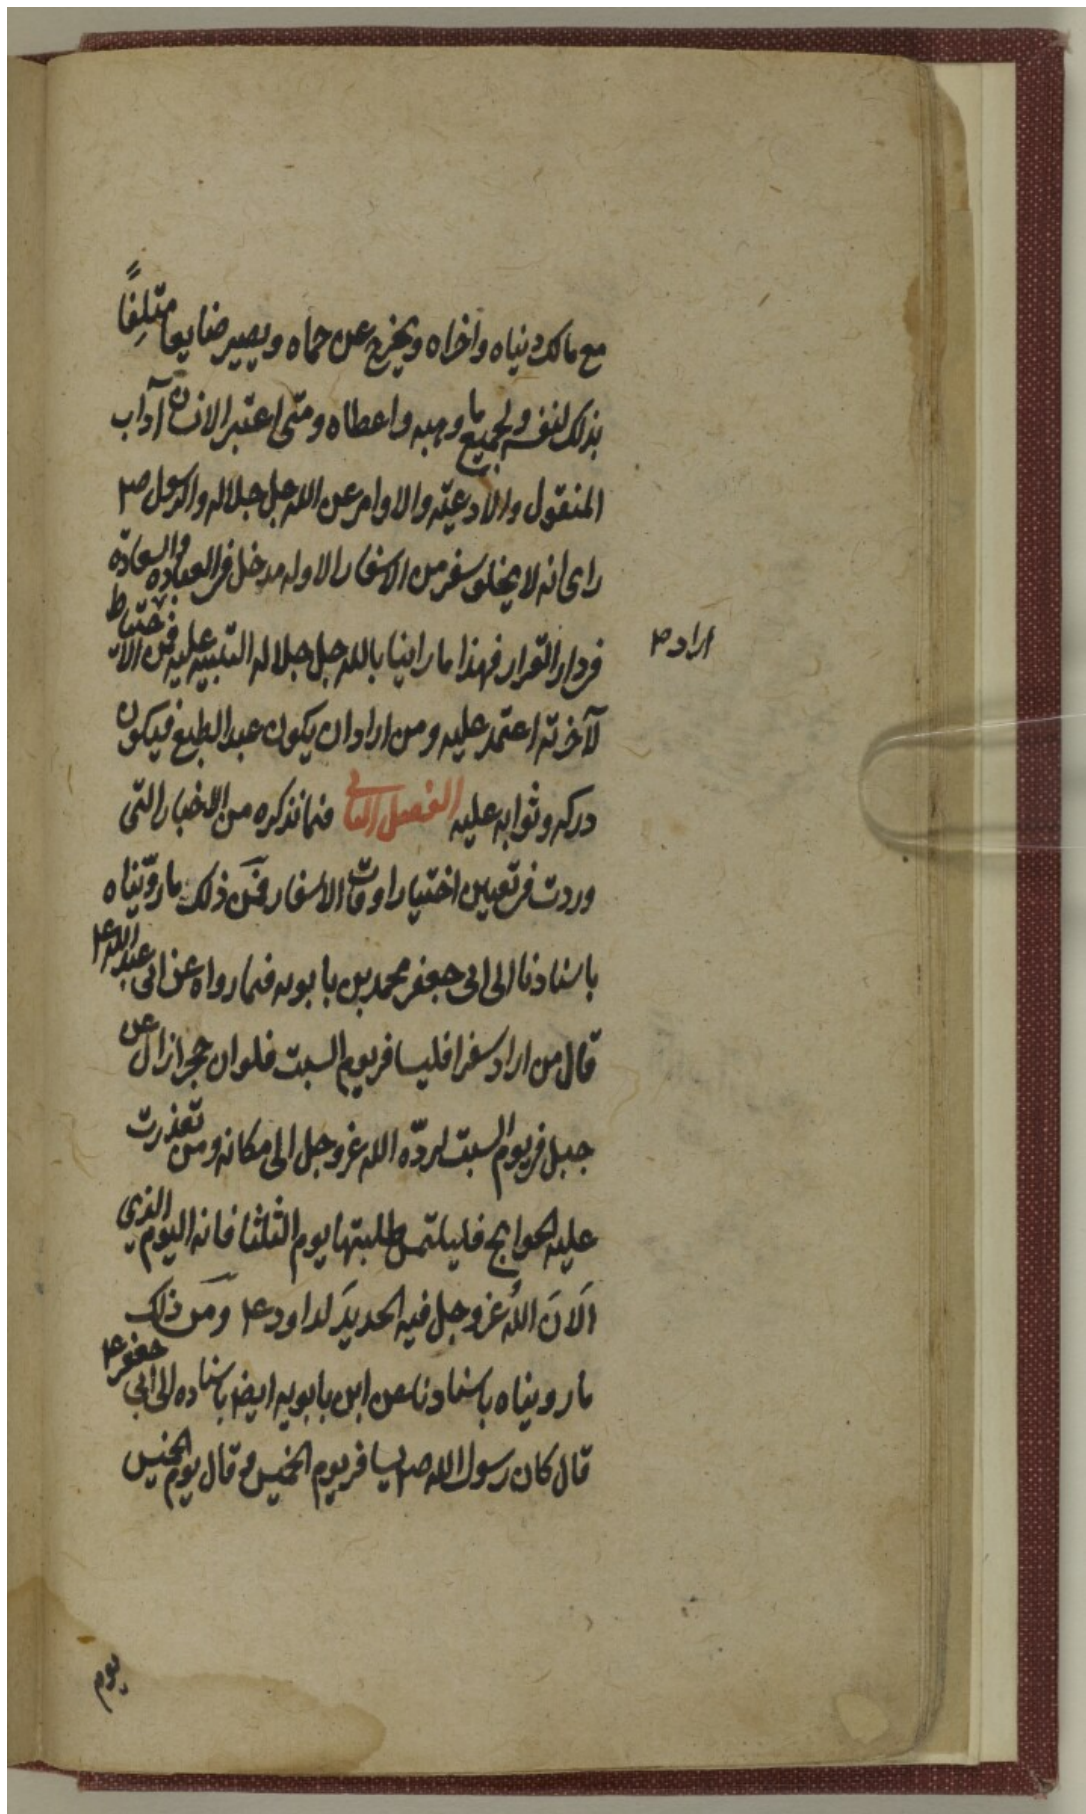 مع مالك دنياه واخراه ويخرج عن حماه ويصير ضايعا متلِفًا
بذلك لنفسه ولجميع ما وهبه واعطاه ومتى اعتبر الانسان آداب
المنقول والادعيّه والاوامر عن الله جل جلاله والرسول ص
راى انه لا يخلو سفر من الاسفار الا وله مدخل فى العباده والسعادة
فى دار القرار فهذا ما راينا بالله جل جلاله التنبيه عليه فمن الاحتياط
اراد ص
لآخرته اعتمد عليه ومن اراد ان يكون عبد الطبع فيكون
دركه وثوابه عليه الفصل الثانى فيما نذكره من الاخبار التى
وردت فى تعيين اختيار اوقات الاسفار فمن ذلك ما روّيناه
باسنادنا الى ابى جعفر محمد بن بابويه فيما رواه عن ابى عبد الله ع
قال من اراد سفرا فليسافر يوم السبت فلو ان حجرا زال عن
جبل فى يوم السبت لردّه الله عز وجل الى مكانه ومن تعذرت
عليه الحوايج فليلتمس طلبتها يوم الثلثا فانه اليوم الذي
اَلَانَ اللّهُ عز وجل فيه الحديدَ لداود ع ومن ذلك
ما رويناه باسنادنا عن ابن بابويه ايضا باسناده الى ابي جعفر ع
قال كان رسول الله ص يسافر يوم الخميس وقال يوم الخميس
يوم